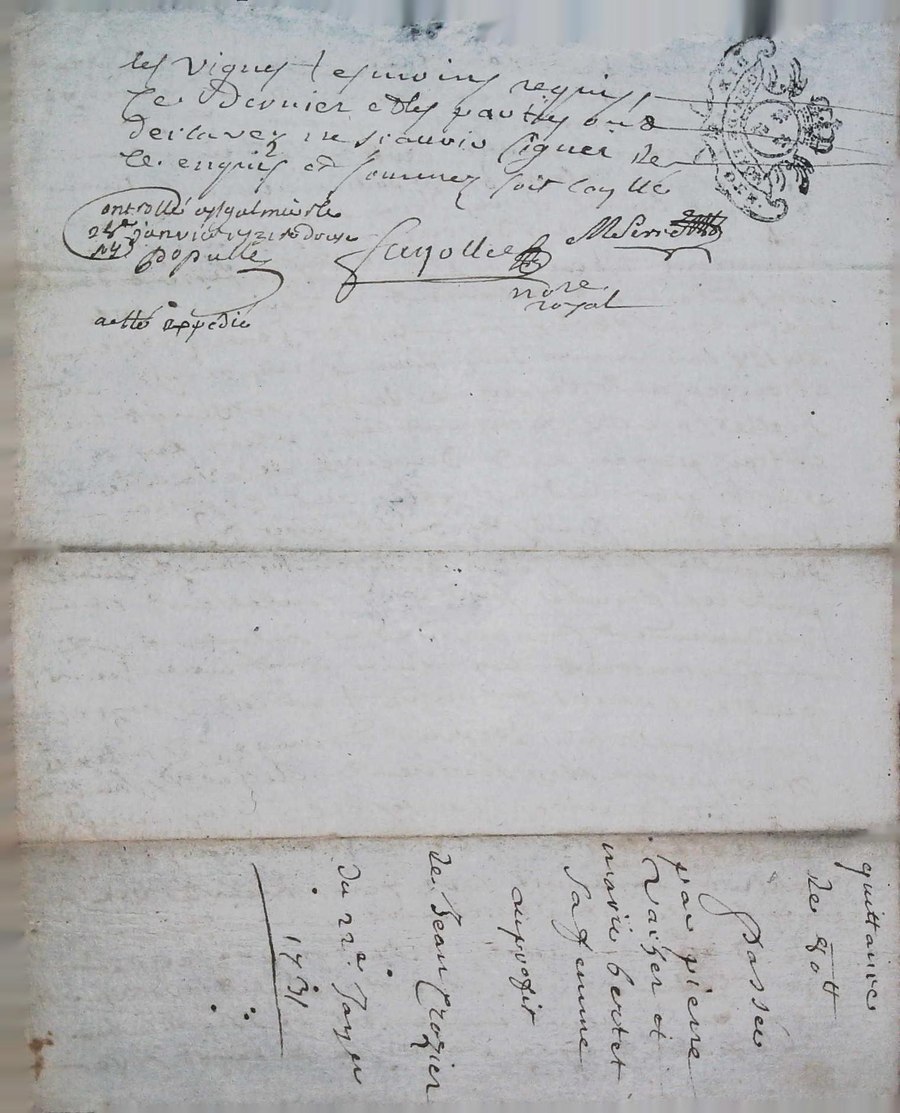 les vignes tesmoins requis,
le dernier et les parties ont
declarez ne scavoir signer de
ce enquis et sommez soit
controllé a st galmier le
28e janvier 1731 r douze
populle
Fayolle
MSerre
nore
royal
acte expedié
quittance
de
Passée
par pierre
et
marie bertet
sa femme
au profit
de Jean Crozier
du 22e Janer
1731